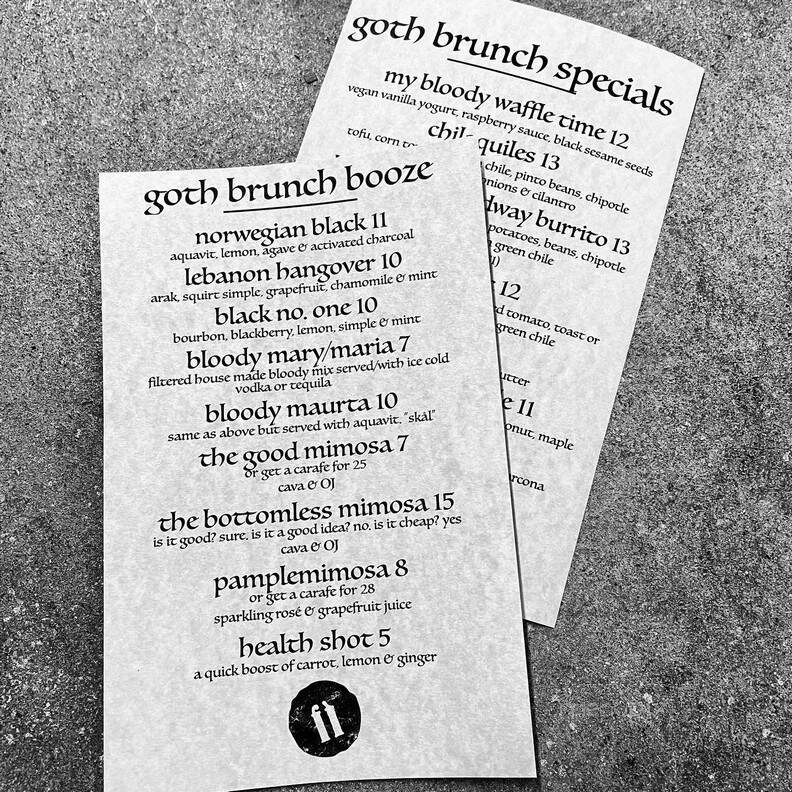 goth brunch specials
my bloody waffle time 12
vegan vanilla yogurt, raspberry sauce, black sesame seeds
quiles 13
tofu, corn
chile, pinto beans, chipotle
onions & cilantro
burrito 13
potatoes, beans, chipotle
green chile
12
tomato, toast or
green chile
11
maple
goth brunch booze
norwegian black 11
aquavit, lemon, agave & activated charcoal
lebanon hangover 10
arak, squirt simple, grapefruit, chamomile & mint
black no. one 10
bourbon, blackberry, lemon, simple & mint
bloody mary/maria 7
filtered house made bloody mix served/with ice cold
vodka or tequila
bloody maurta 10
same as above but served with aquavit, "skål"
the good mimosa 7
or get a carafe for 25
cava & OJ
the bottomless mimosa 15
is it good? sure. is it a good idea? no. is it cheap? yes
cava & OJ
pamplemimosa 8
or get a carafe for 28
sparkling rosé & grapefruit juice
health shot 5
a quick boost of carrot, lemon & ginger